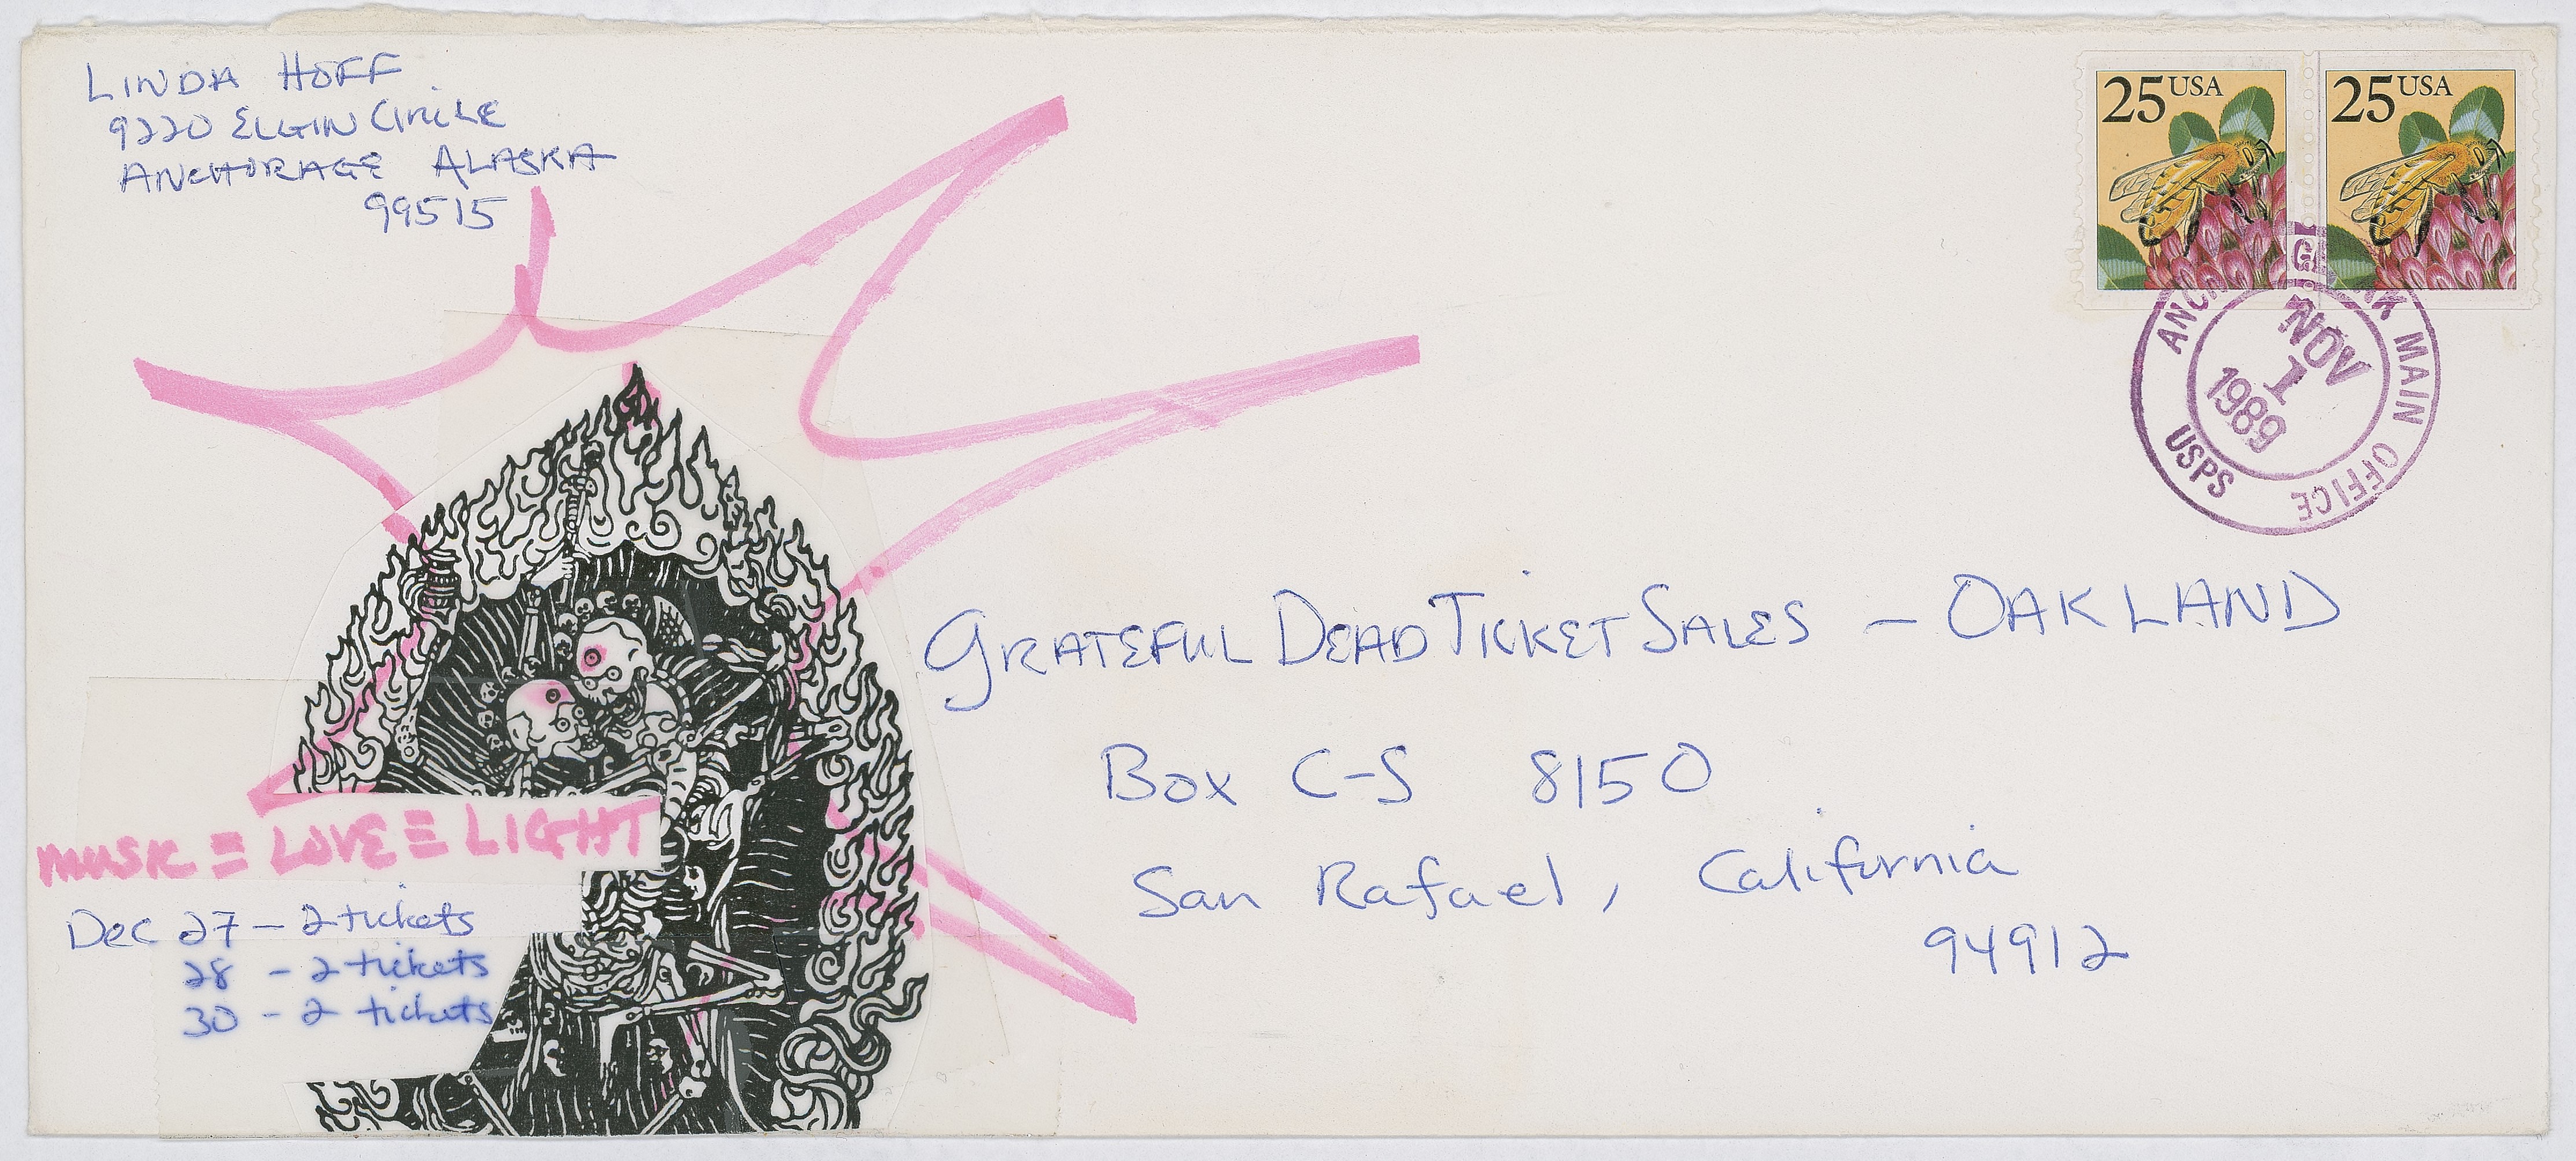 LINDA HOFF
9220 ELGIN CIRCLE
ANCHORAGE ALASKA
99515
25 USA
25 USA
MAIN OFFICE
USPS
NOV
1
1989
GRATEFUL DEAD TICKET SALES - OAKLAND
Box C-S 8150
San Rafael, California
94912
MUSIC ≡ LOVE ≡ LIGHT
Dec 27 - 2 tickets
28 - 2 tickets
30 - 2 tickets